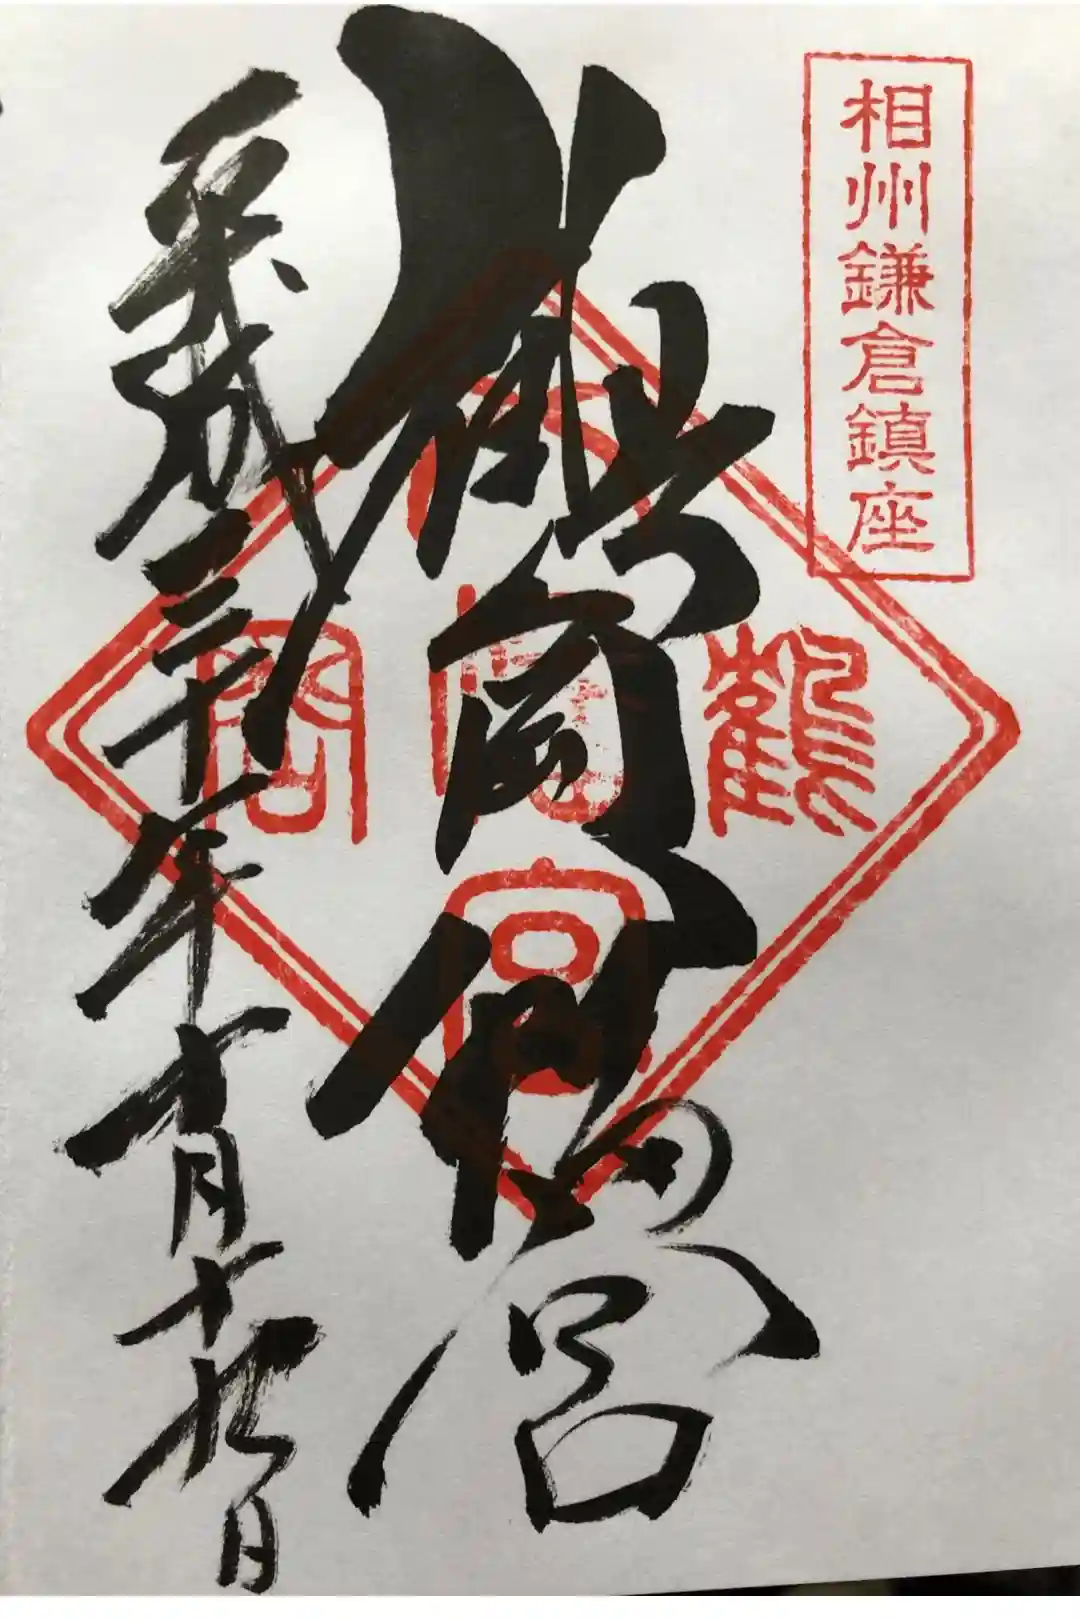 相州鎌倉鎮座
鶴岡八幡宮
平成三十年十一月十九日
鶴岡八幡宮